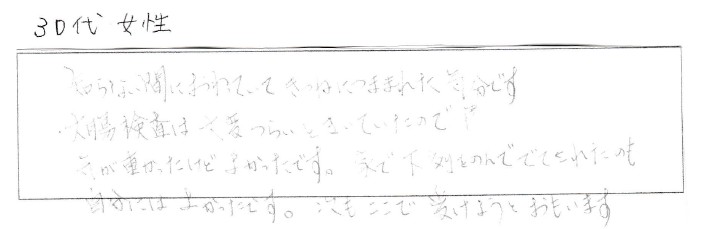 30代 女性
知らない間におわっていて きつねにつままれた気分です
大腸検査は大変つらいときいていたので
気が重かったけど よかったです。家で下剤をのんででこられたのも
自分には よかったです。次も ここで 受けようと おもいます